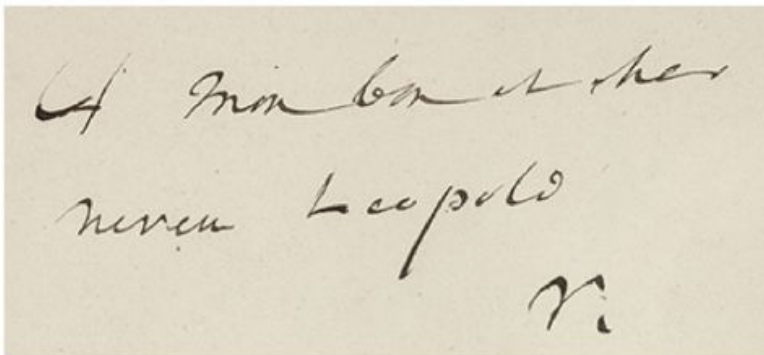 A mon bon et cher
neveu Leopold
V.